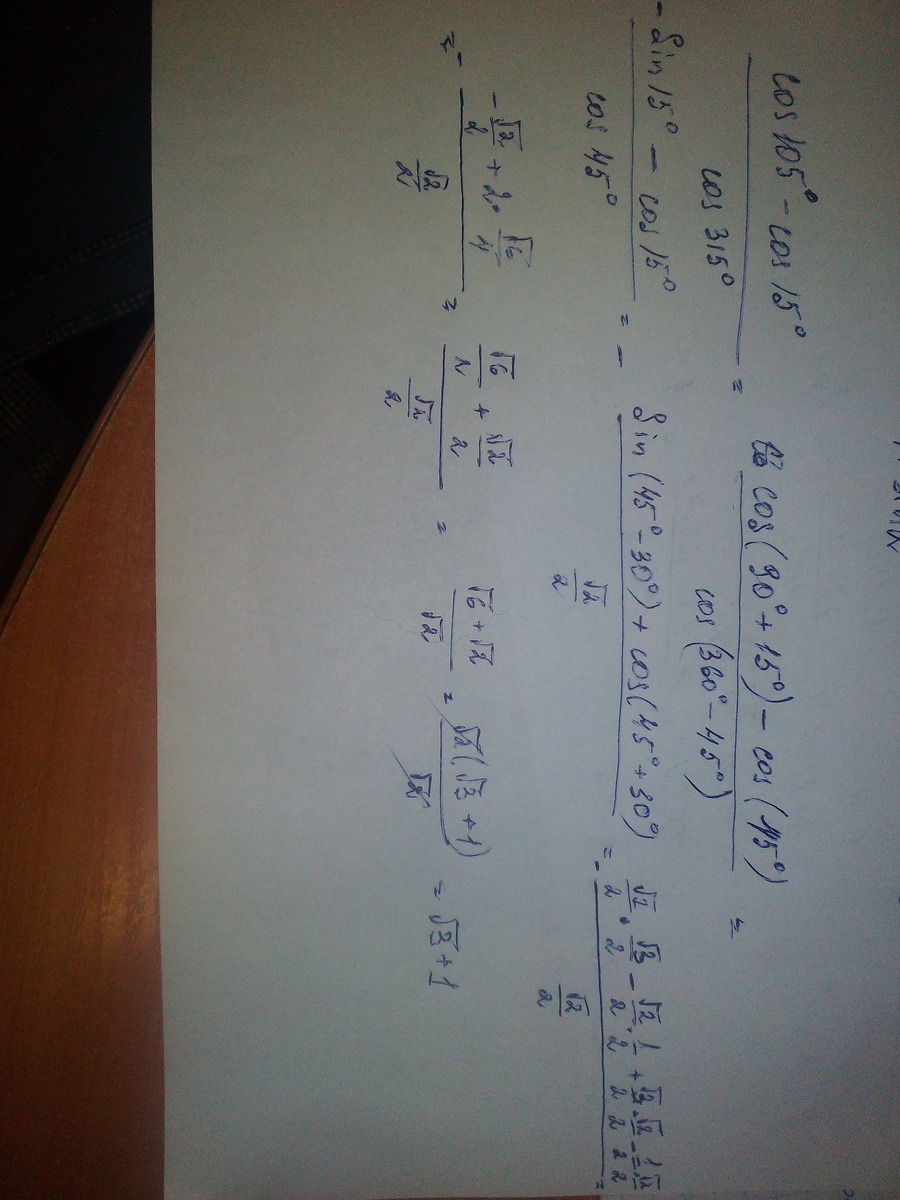 cos 105° - cos 15° / cos 315° = cos(90° + 15°) - cos(45°) / cos(360° - 45°) =
- sin 15° - cos 15° / cos 45° = - sin(45° - 30°) + cos(45° + 30°) / √2/2 = - √2/2 · √3/2 - √2/2 · 1/2 + √3/2 · √2/2 - 1/2 √2/2 / √2/2 =
= - -√2/2 + 2 · √6/4 / √2/2 = √6/2 + √2/2 / √2/2 = √6 + √2 / √2 = √2(√3 + 1) / √2 = √3 + 1